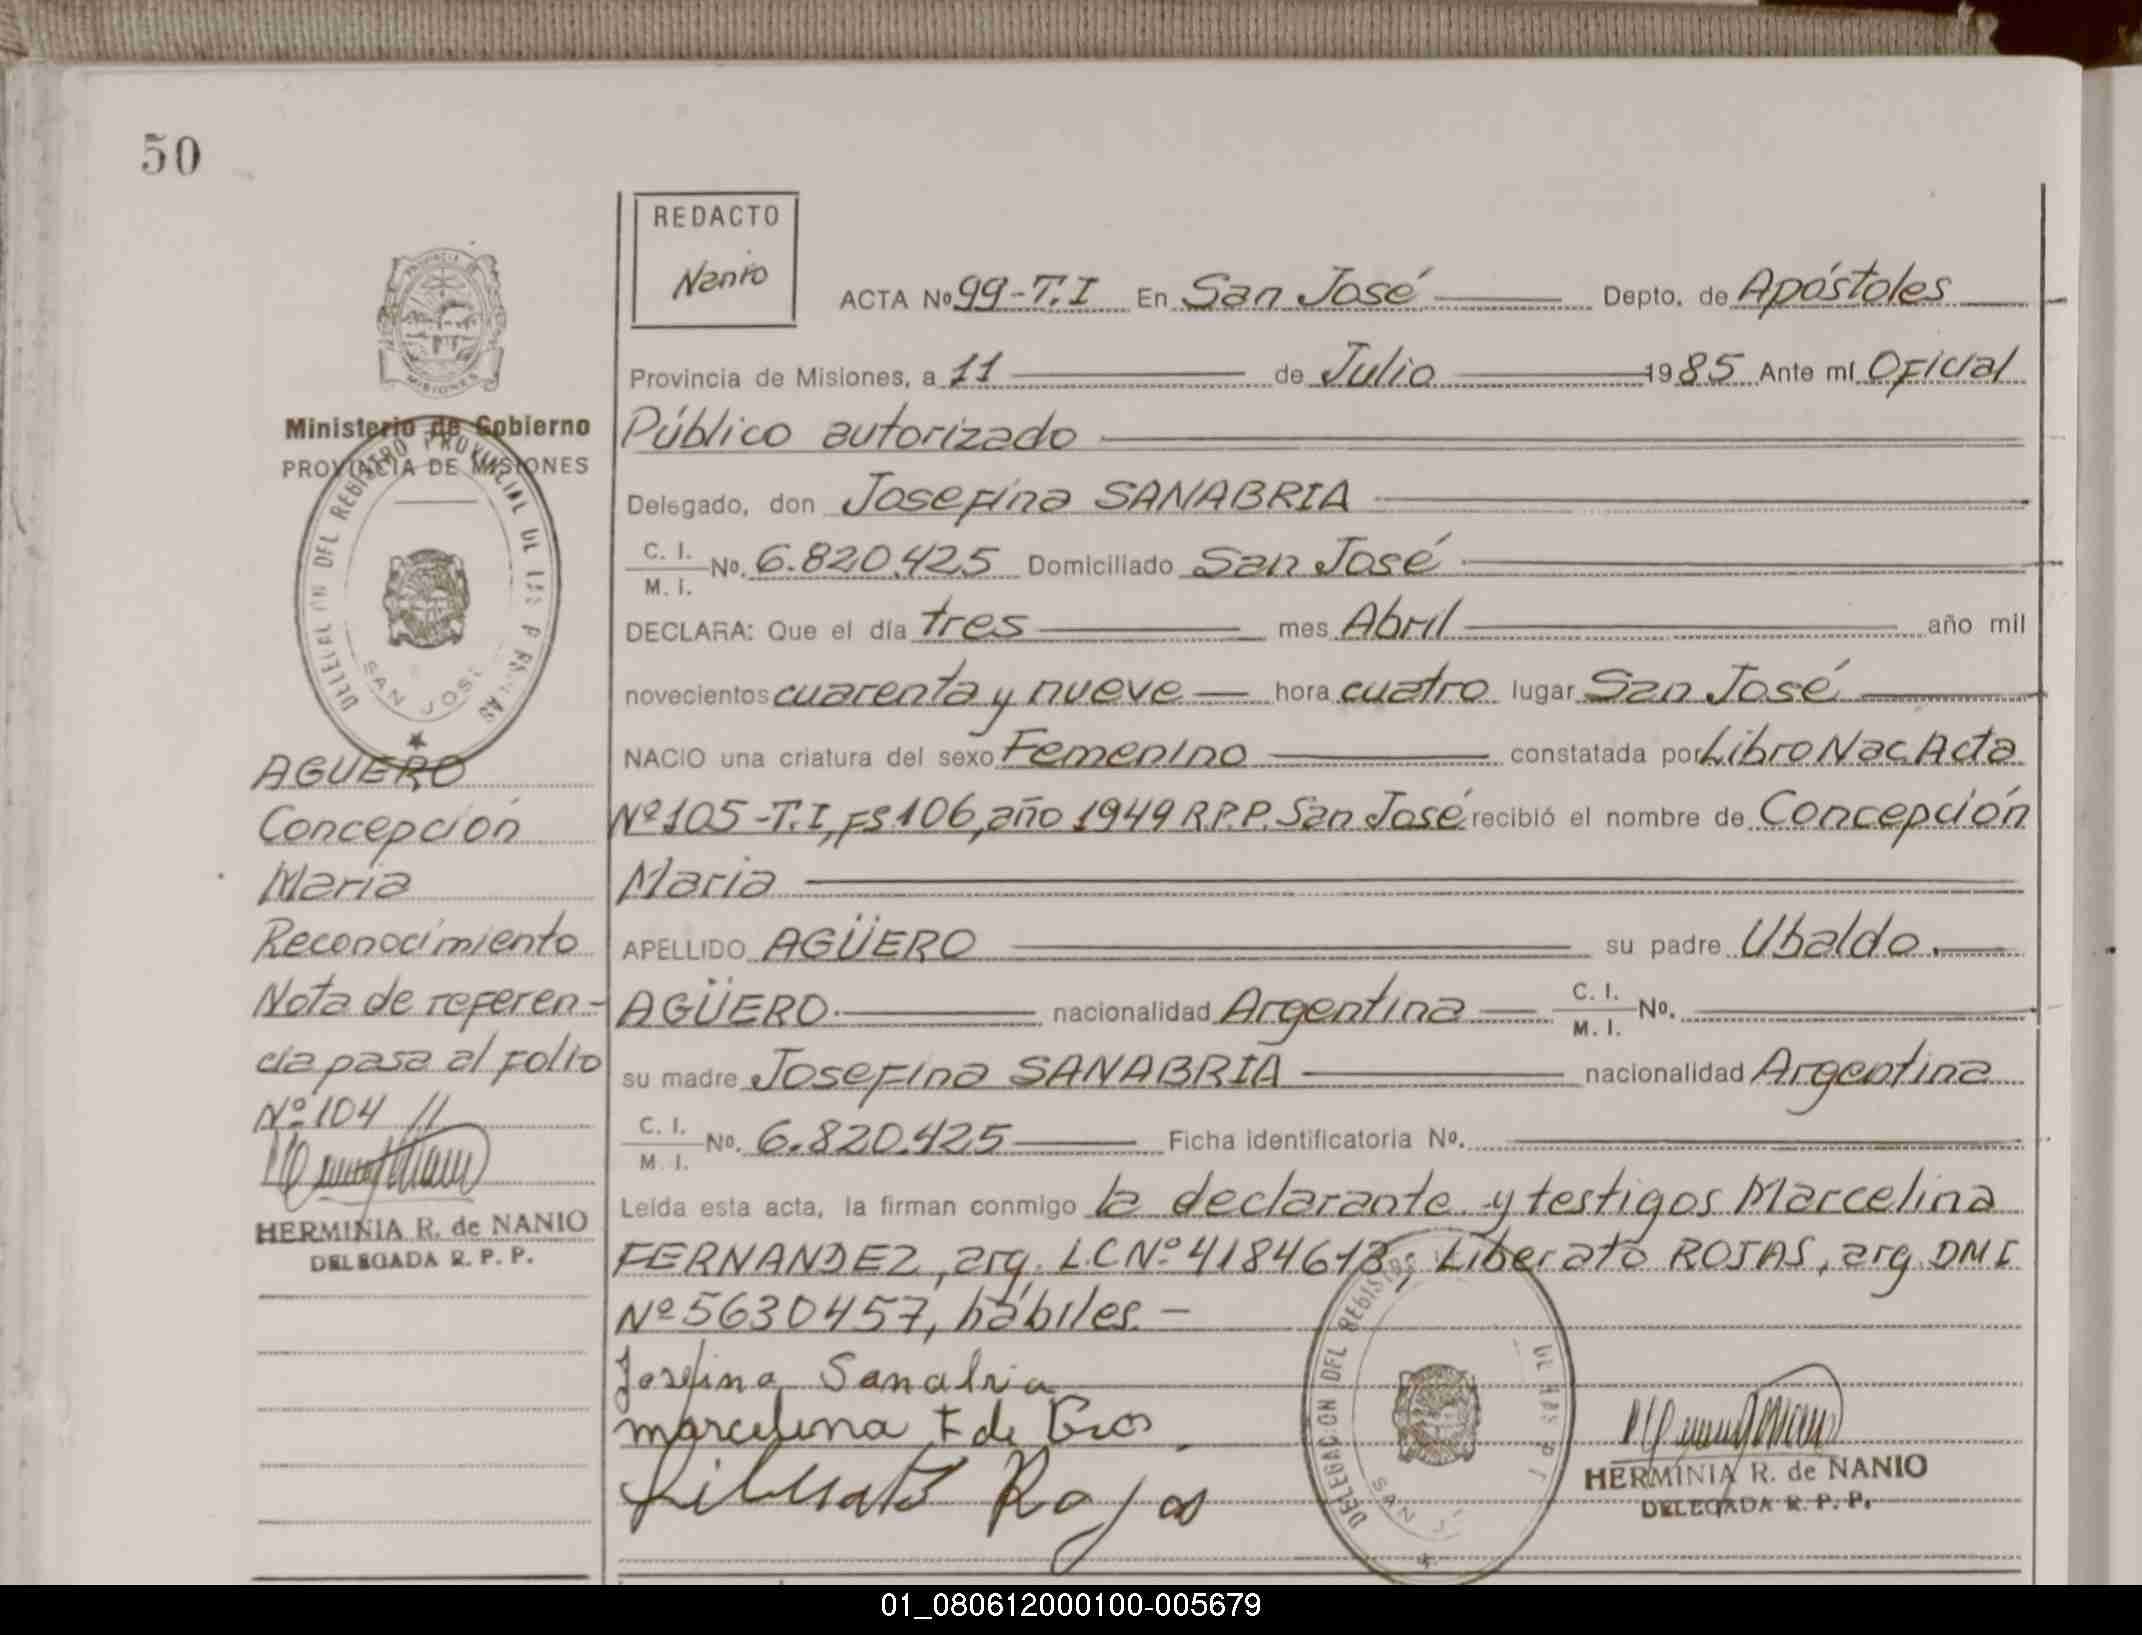 50
REDACTO
Nanio
ACTA No 99-T.I En San José Depto. de Apóstoles
Provincia de Misiones, a 11 de Julio 1985 Ante mí Oficial
Público autorizado
Delegado, don Josefina SANABRIA
C. I.
M. I. No. 6.820.425 Domiciliado San José
DECLARA: Que el día tres mes Abril año mil
novecientos cuarenta y nueve hora cuatro lugar San José
NACIO una criatura del sexo Femenino constatada por Libro Nac Acta
Nº 105-T.I, Fs 106, año 1949 R.P.P. San José recibió el nombre de Concepción
Maria
APELLIDO AGÜERO su padre Ubaldo
AGÜERO nacionalidad Argentina C. I.
M. I. No.
su madre Josefina SANABRIA nacionalidad Argentina
C. I.
M. I. No. 6.820.425 Ficha identificatoria No.
Leída esta acta, la firman conmigo la declarante y testigos Marcelina
FERNANDEZ, arg. L.C Nº 4184613; Liberato ROJAS, arg. DMI
Nº 5630457, hábiles. -
Josefina Sanabria
Marcelina F de
Liberato Rojas
HERMINIA R. de NANIO
DELEGADA R. P. P.
DELEGACION DEL REGISTRO
SAN
PROVINCIA DE
MISIONES
Ministerio de Gobierno
PROVINCIA DE MISIONES
DELEGACION DEL REGISTRO PROVINCIAL DE LAS PERSONAS
SAN JOSE
AGUERO
Concepción
Maria
Reconocimiento
Nota de referen-
cia pasa al folio
Nº 104 //
HERMINIA R. de NANIO
DELEGADA R. P. P.
01_080612000100-005679